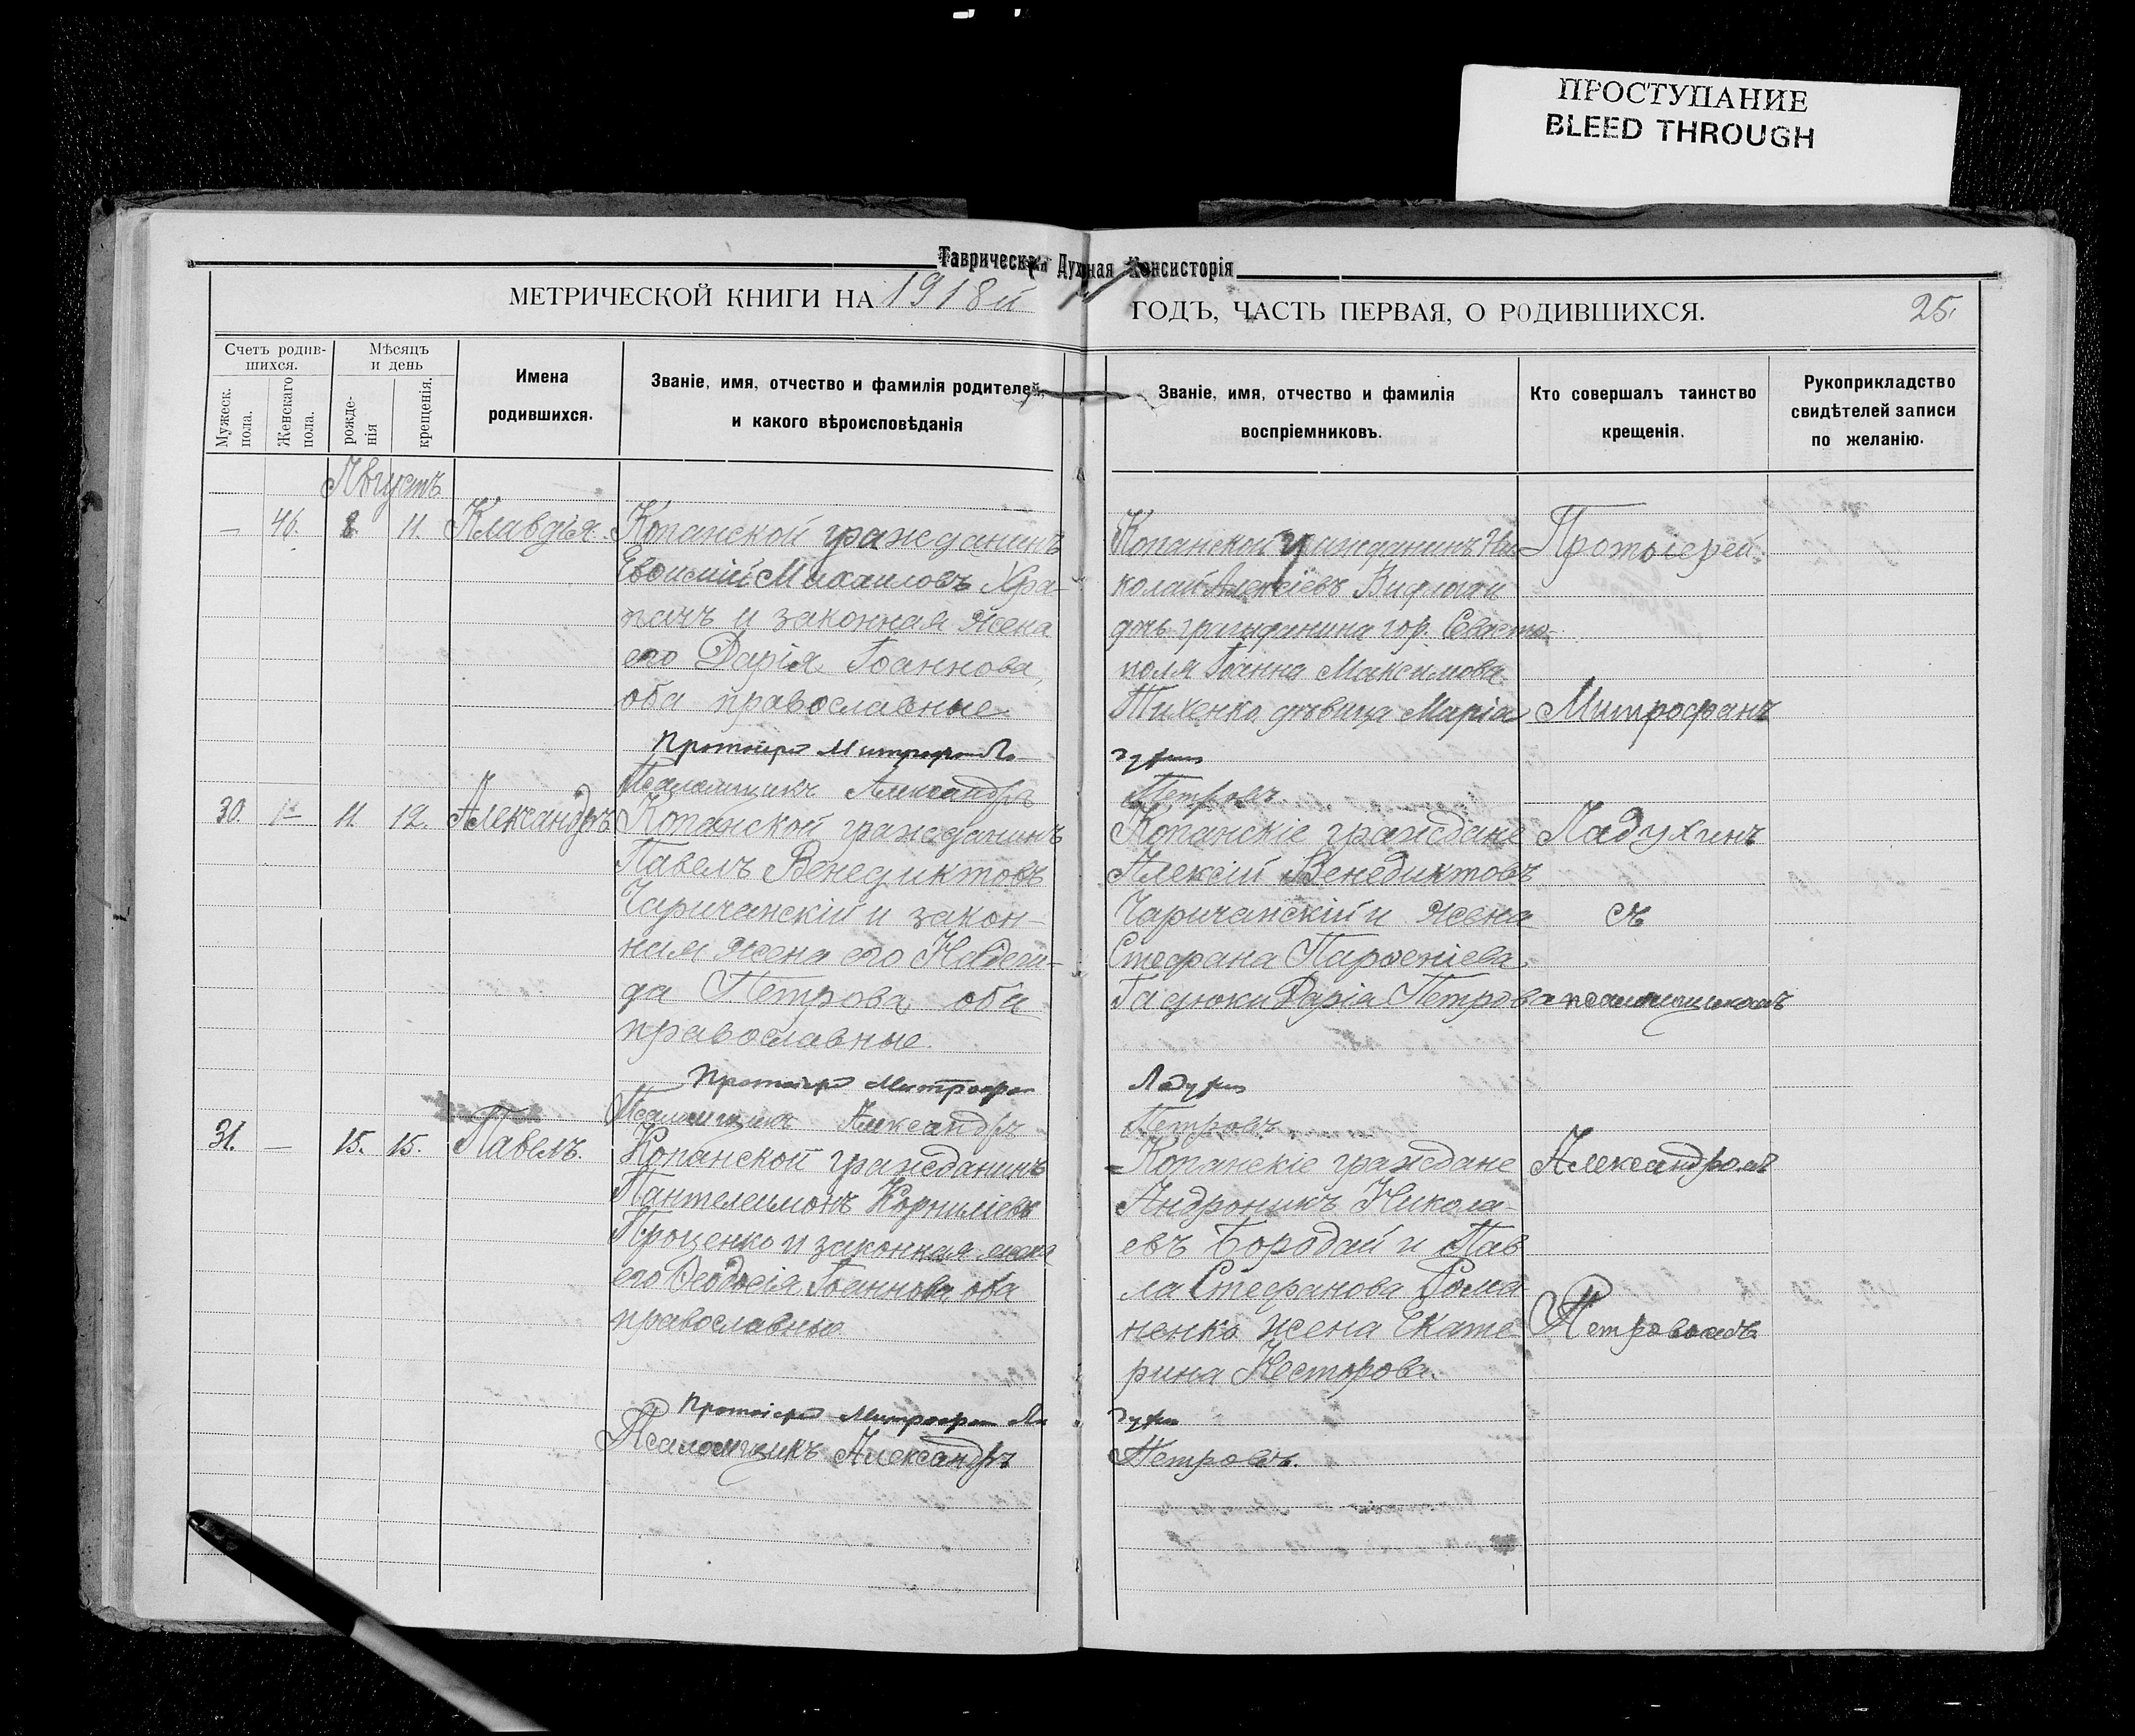 ПРОСТУПАНИЕ
BLEED THROUGH
Таврическая Духовная Консисторія
МЕТРИЧЕСКОЙ КНИГИ НА 1918й ГОДЪ, ЧАСТЬ ПЕРВАЯ, О РОДИВШИХСЯ.
25.
Счетъ родив-
шихся.
Мужеск.
пола.
Женскаго
пола.
Мѣсяцъ
и день
рожде-
нія
крещенія.
Имена
родившихся.
Званіе, имя, отчество и фамилія родителей,
и какого вѣроисповѣданія
Званіе, имя, отчество и фамилія
воспріемниковъ.
Кто совершалъ таинство
крещенія.
Рукоприкладство
свидѣтелей записи
по желанію.
Августъ
— 46. 8 11. Клавдія.
Копанской гражданинъ
Евѳимій Михаиловъ Хра-
пачъ и законная жена
его Дарія Іоаннова,
оба православные
Протоіерей Митрофанъ Ла-
Псаломщикъ Александръ
Копанской гражданинъ Ни-
колай Алексіевъ
дчь гражданина гор. Севасто-
поля Іоанна Максимова
Тихенко, дѣвица Марія
духинъ
Петровъ
Протоіерей
Митрофанъ
Ладухинъ
съ
псаломщикомъ
Александромъ
Петровымъ
30. — 11. 12. Александръ
Копанской гражданинъ
Павелъ Венедиктовъ
Чаричанскій и закон-
ная жена его Надеж-
да Петрова, оба
православные.
Протоіерей Митрофанъ
Псаломщикъ Александръ
Копанскіе граждане
Алексій Венедиктовъ
Чаричанскій и жена
Стефана Парѳеніева
Гасюки Дарія Петрова
Ладухинъ
Петровъ
31. — 15. 15. Павелъ.
Копанской гражданинъ
Пантелеимонъ Корниліевъ
Проценко и законная жена
его Ѳеодосія Іоаннова оба
православные
Протоіерей Митрофанъ Ла
Псаломщикъ Александръ
Копанскіе граждане
Андроникъ Никола-
евъ Бородай и Пав
ла Стефанова Рома-
ненко жена Екате-
рина Несторова.
духинъ
Петровъ.